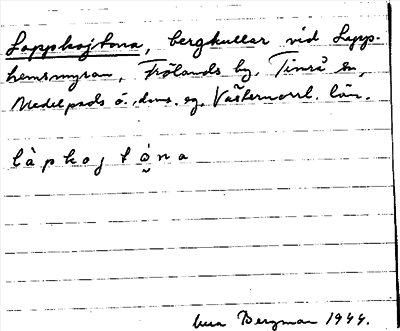 Lappkojtorna, bergkullar vid Lapp-
hemsmyran, Frölands by, Timrå sn,
Medelpads ö. doms. eg. Västernorrl. län.
làpkojtó̬na
Bergman 1944.